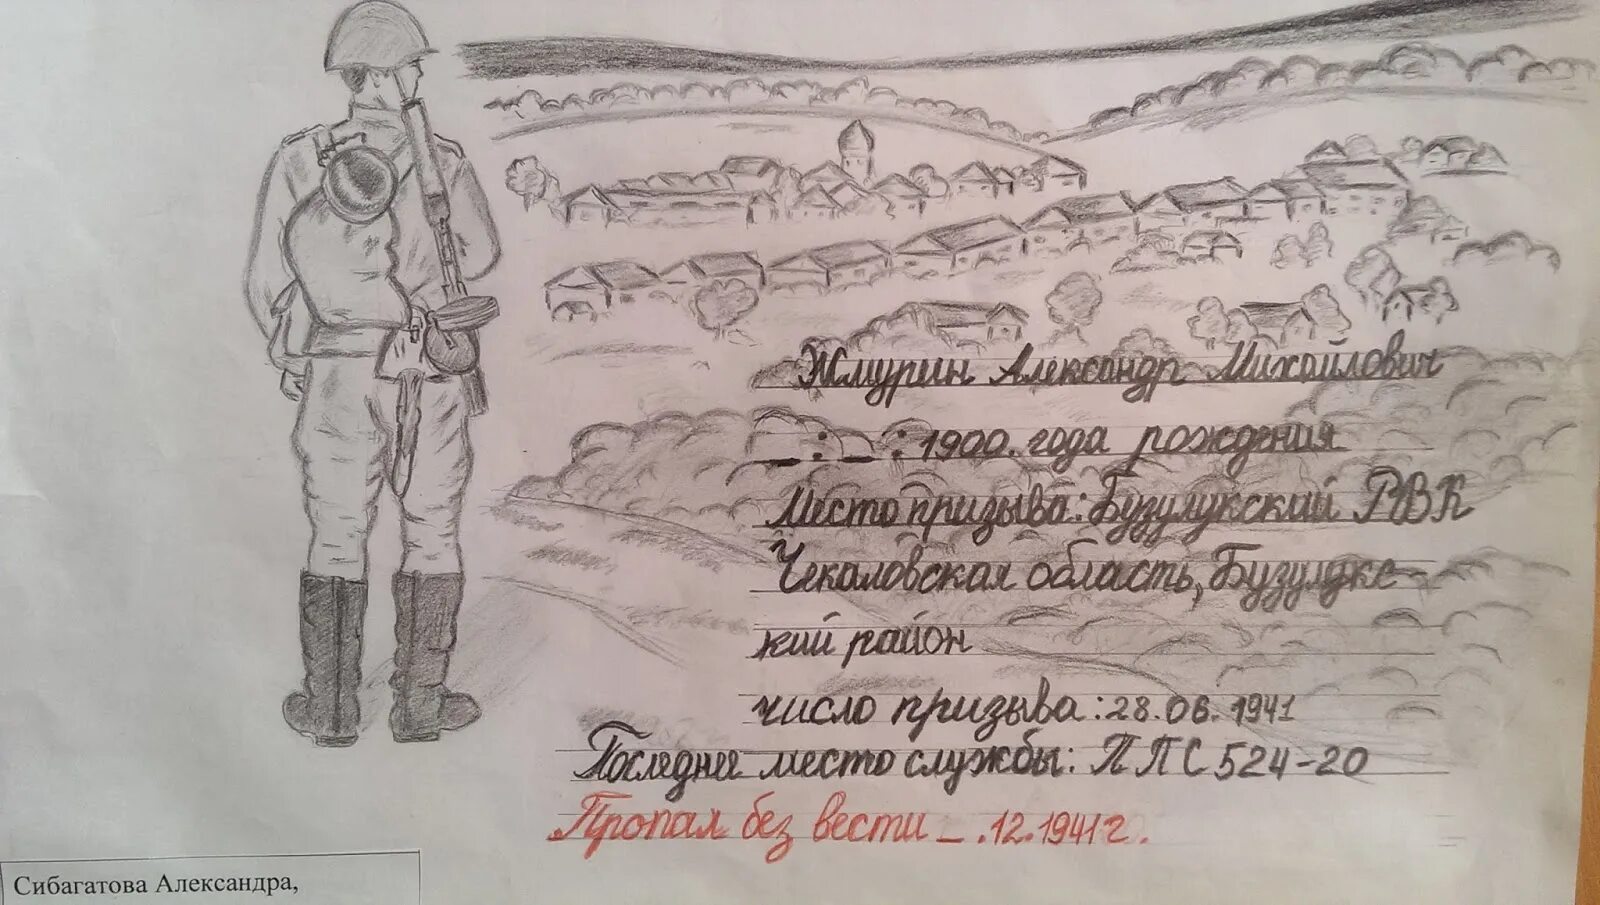 Жмурин Александр Михайлович
_ : _ : 1900. года рождения
Место призыва: Бузулукский РВК
Чекаловская область, Бузулукс-
кий район
число призыва: 28.06.1941
Последнее место службы: ППС 524-20
Пропал без вести _.12.1941г.
Сибагатова Александра,